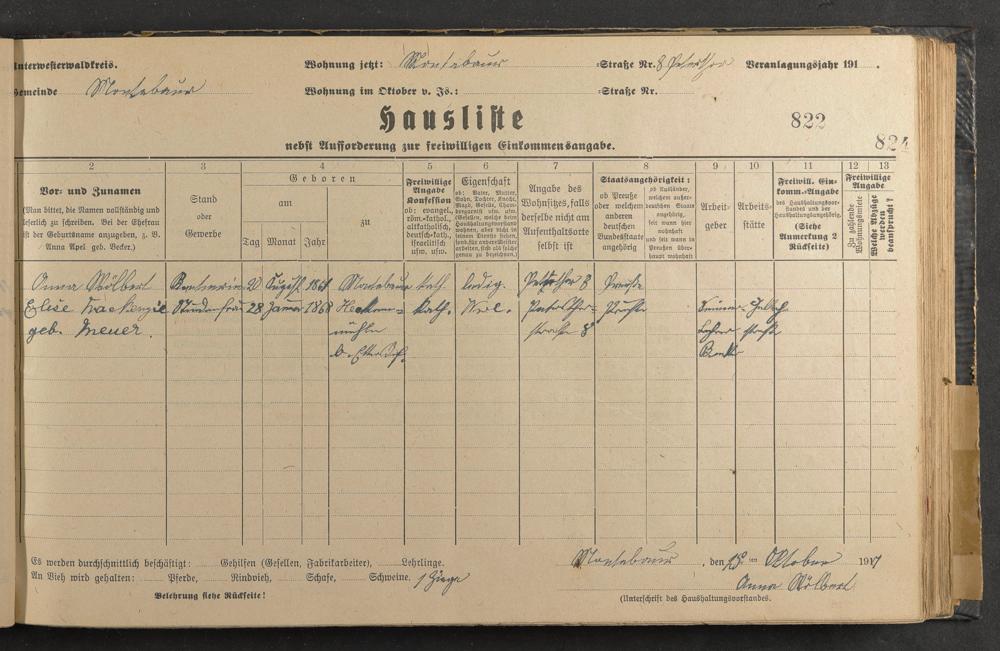 Unterwesterwaldkreis. Wohnung jetzt: Montabaur Straße Nr. 8 Peterthor Veranlagungsjahr 191 .
Gemeinde Montabaur Wohnung im Oktober v. Js.: Straße Nr.
Hausliste
822
824
nebst Aufforderung zur freiwilligen Einkommensangabe.
2 3 4 5 6 7 8 9 10 11 12 13
Vor- und Zunamen
(Man bittet, die Namen vollständig und
leserlich zu schreiben. Bei der Ehefrau
ist der Geburtsname anzugeben, z. B.
Anna Apel geb. Becker.)
Stand
oder
Gewerbe
Geboren
am
zu
Tag Monat Jahr
Freiwillige
Angabe
Konfession
ob: evangel.,
röm.-kathol.,
altkatholisch,
deutsch-kath.,
israelitisch
usw. usw.
Eigenschaft
ob: Vater, Mutter,
Sohn, Tochter, Knecht,
Magd, Geselle,
Angabe des
Wohnsitzes, falls
derselbe nicht am
Aufenthaltsorte
selbst ist
Staatsangehörigkeit:
ob Preuße
oder welchem
anderen
deutschen
Bundesstaate
angehörig
ob Ausländer,
welchem außer-
deutschen Staate
angehörig,
seit wann hier
wohnhaft
und seit wann in
Preußen über-
haupt wohnhaft
Arbeit-
geber
Arbeits-
stätte
Freiwill. Ein-
komm.-Angabe
des Haushaltungsvor-
standes und der
Haushaltungsangehörig.
(Siehe
Anmerkung 2
Rückseite)
Freiwillige
Angabe
Zu zahlende
Wohnungsmiete
Welche Abzüge
werden
beansprucht?
Anna Wölbert Rentnerin 20 August Montabaur kath. ledig. Peterthor 8 Preuße
Elise 28 Januar 1868 kath. Preuße
geb. Meuer. mühle straße 8
Es werden durchschnittlich beschäftigt: Gehilfen (Gesellen, Fabrikarbeiter), Lehrlinge.
An Vieh wird gehalten: Pferde, Rindvieh, Schafe, Schweine. 1 Ziege
Belehrung siehe Rückseite!
Montabaur, den 15ten Oktober 1917
Anna Wölbert
(Unterschrift des Haushaltungsvorstandes.